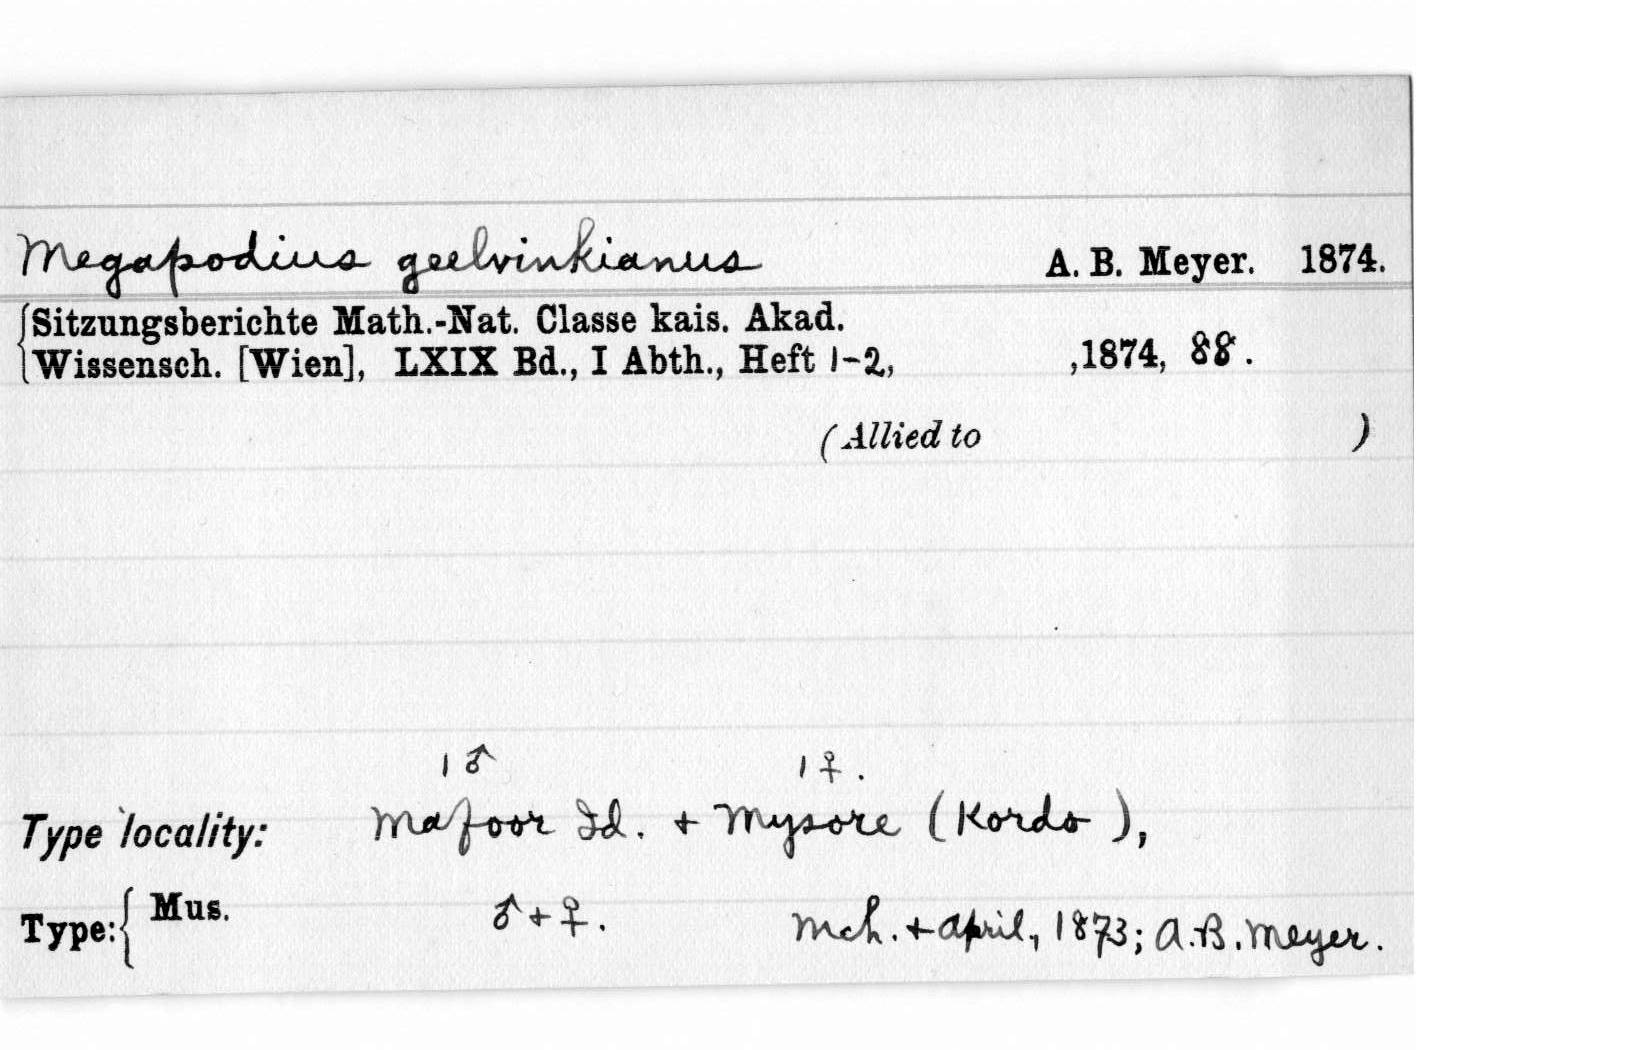 Megapodius geelvinkianus A. B. Meyer. 1874.
Sitzungsberichte Math.-Nat. Classe kais. Akad.
Wissensch. [Wien], LXIX Bd., I Abth., Heft 1-2, ,1874, 88.
(Allied to )
1 ♂ 1 ♀.
Type locality: Mafoor Id. + Mysore (Kordo),
Type: Mus. ♂ + ♀. Mch. + April, 1873; A.B. Meyer.